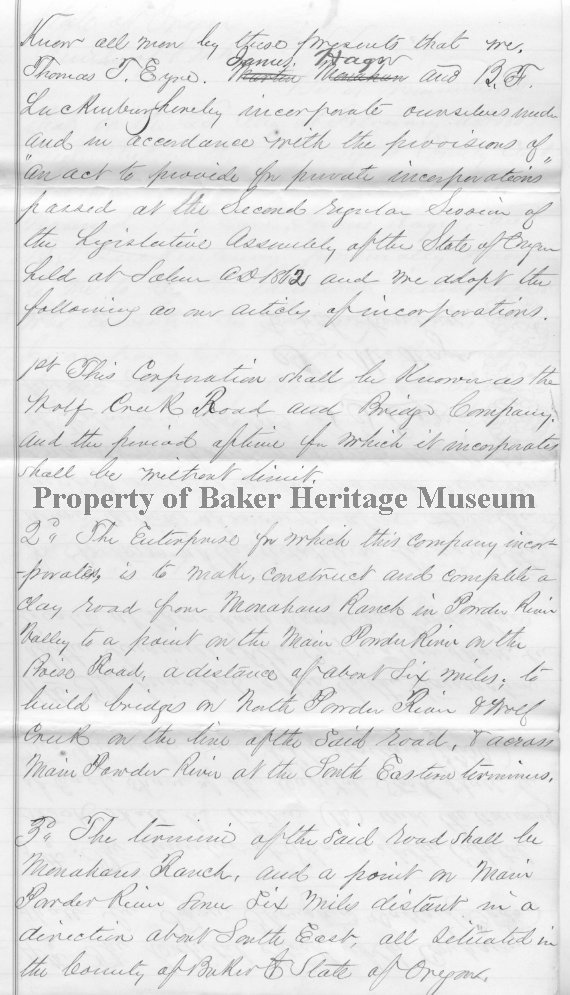 Know all men by these presents that we.
James Hagen
Thomas T. Eyre. Martin Monahan and B. F.
Luckenburg hereby incorporate ourselves under
and in accordance with the provisions of
"an act to provide for private incorporations"
passed at the Second regular Session of
the Legislative Assembly of the State of Oregon
held at Salem AD 1862 and we adopt the
following as our articles of incorporations.
1st This Corporation shall be Known as the
Wolf Creek Road and Bridge Company.
and the period of time for which it incorporates
shall be without limit.
Property of Baker Heritage Museum
2d, The Enterprise for which this company incor-
-porates, is to make, construct and complete a
clay road from Monahans Ranch in Powder River
Valley to a point on the Main Powder River on the
Boise Road, a distance of about Six miles; to
build bridges on North Powder River & Wolf
Creek on the line of the Said road, & across
Main Powder River at the South Eastern terminus.
3d, The termini of the said road shall be
Monahans Ranch, and a point on Main
Powder River some Six Miles distant in a
direction about South East, all situated in
the County of Baker & State of Oregon.